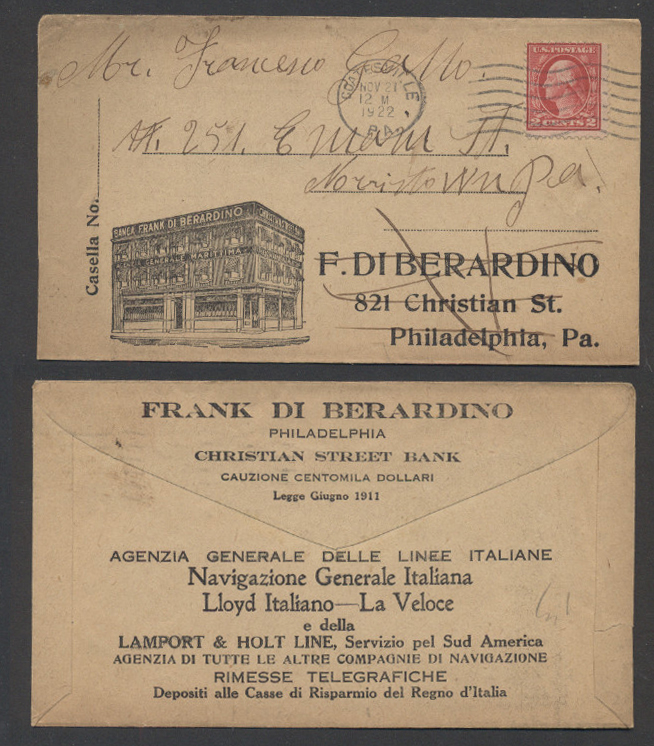 Mr. Francesco Gallo.
COATESVILLE
NOV 21
12 M
1922
PA.
U.S. POSTAGE
2 CENTS 2
251. E Main St.
Norristown Pa.
Casella No.
BANCA FRANK DI BERARDINO
GENERALE MARITTIMA
F. DI BERARDINO
821 Christian St.
Philadelphia, Pa.
FRANK DI BERARDINO
PHILADELPHIA
CHRISTIAN STREET BANK
CAUZIONE CENTOMILA DOLLARI
Legge Giugno 1911
AGENZIA GENERALE DELLE LINEE ITALIANE
Navigazione Generale Italiana
Lloyd Italiano—La Veloce
e della
LAMPORT & HOLT LINE, Servizio pel Sud America
AGENZIA DI TUTTE LE ALTRE COMPAGNIE DI NAVIGAZIONE
RIMESSE TELEGRAFICHE
Depositi alle Casse di Risparmio del Regno d'Italia